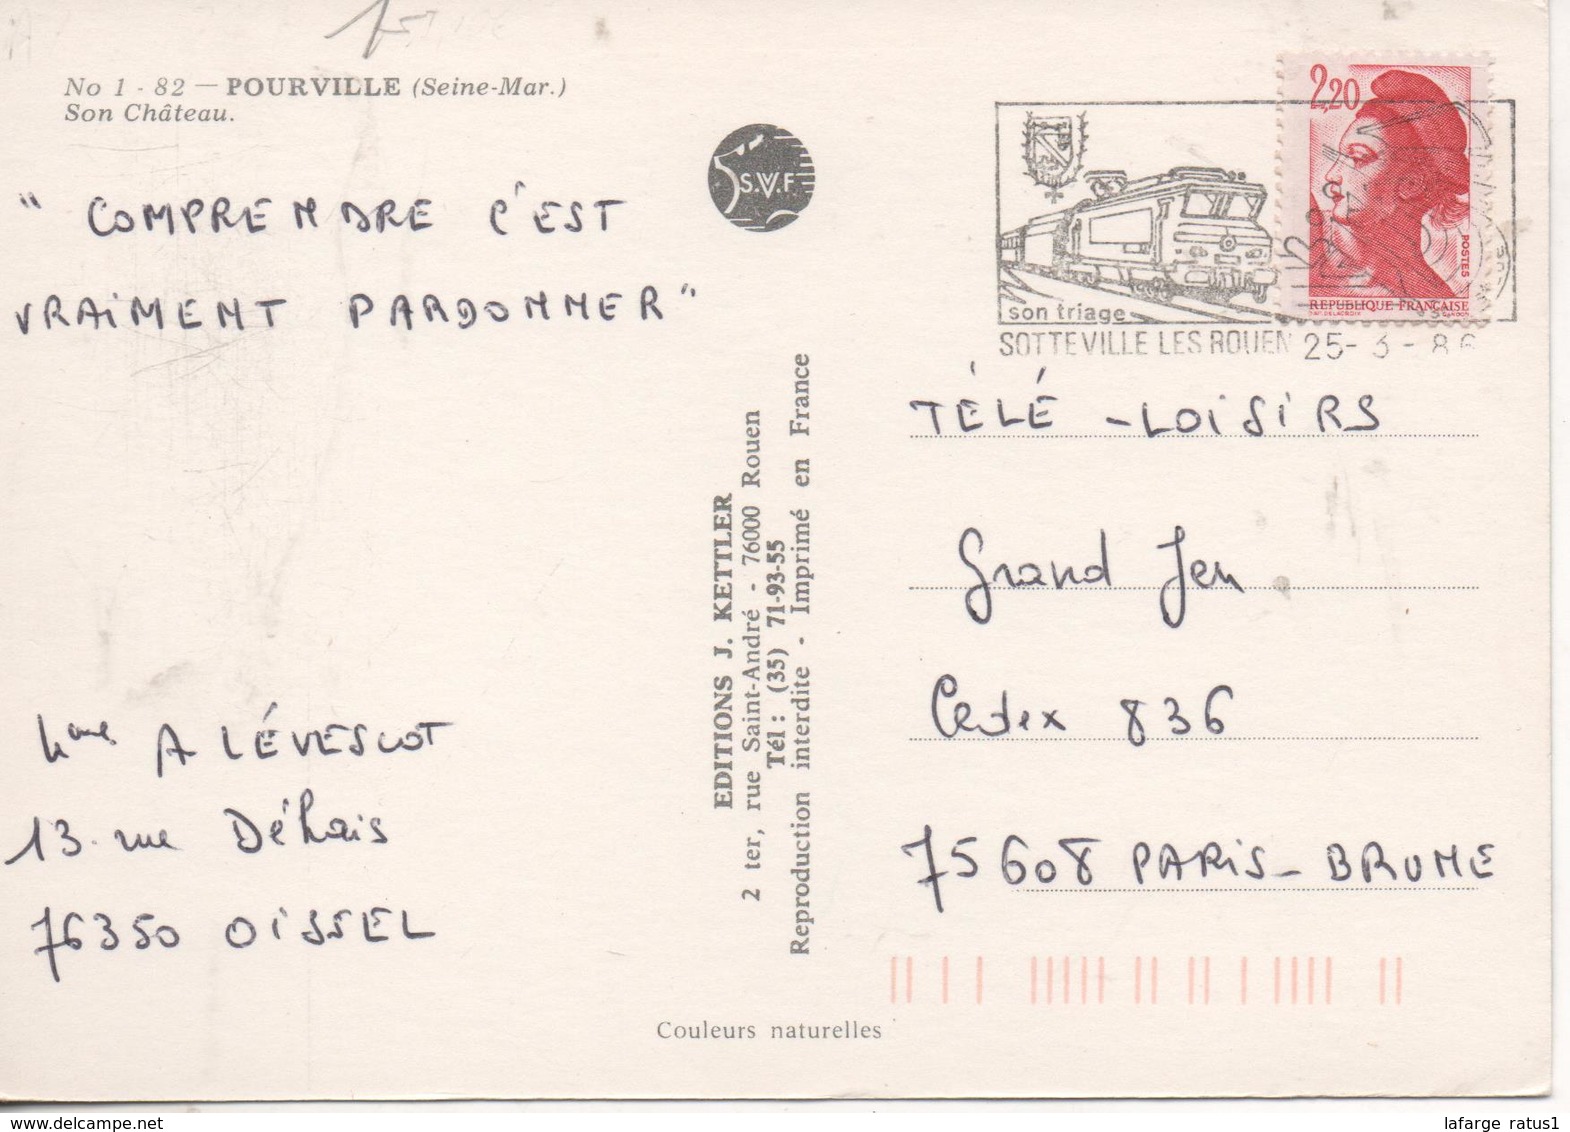 No 1 - 82 — POURVILLE (Seine-Mar.)
Son Château.
" COMPRENDRE C'EST
VRAIMENT PARDONNER "
Mme A LÉVESCOT
13 rue Déhais
76350 OISSEL
S.V.F.
EDITIONS J. KETTLER
2 ter, rue Saint-André - 76000 Rouen
Tél : (35) 71-93-55
Reproduction interdite - Imprimé en France
Couleurs naturelles
2,20
POSTES
REPUBLIQUE FRANÇAISE
son triage
SOTTEVILLE LES ROUEN 25-3-86
TÉLÉ - LOISIRS
Grand Jeu
Cedex 836
75608 PARIS - BRUNE
www.delcampe.net
lafarge ratus1